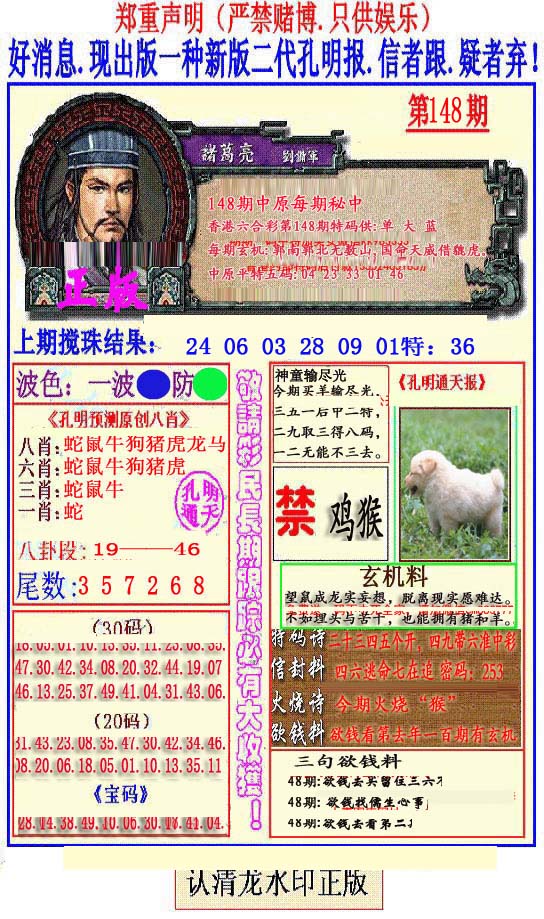 郑重声明（严禁赌博.只供娱乐）
好消息.现出版一种新版二代孔明报.信者跟.疑者弃!
第148期
諸葛亮 劉備軍
148期中原每期秘中
香港六合彩第148期特码供:单 大 蓝
每期玄机:郭南郭北无数山,国命天威借虢虎.
中原平特五码:04 25 33 01 46
正版
上期搅珠结果： 24 06 03 28 09 01特：36
波色：一波 防
《孔明预测原创八肖》
八肖:蛇鼠牛狗猪虎龙马
六肖:蛇鼠牛狗猪虎
三肖:蛇鼠牛
一肖:蛇
孔明
通天
八卦段：19——46
尾数:357268
(30码)
18.05.01.10.13.35.11.23.08.35.
47.30.42.34.08.20.32.44.19.07
46.13.25.37.49.41.04.31.43.06.
(20码)
31.43.23.08.35.47.30.42.34.46.
08.20.06.18.05.01.10.13.35.11
《宝码》
28.14.38.49.10.06.30.18.41.04.
敬請彩民長期跟踪必有大收獲！
神童输尽光
今期买羊输尽光.
三五一后甲二特，
二九取三得八码，
一二无能不三去。
《孔明通天报》
禁 鸡猴
玄机料
望鼠成龙实妄想，脱离现实愿难达。
不如埋头与苦干，也能拥有猪和羊。
特码诗 二十三四五个开，四九带六准中彩
信封料 四六逃命七在追 密码：253
火烧诗 今期火烧“猴”
欲钱料 欲钱看第去年一百期有玄机
三句欲钱料
48期:欲钱去买留住三六不
48期:欲钱找儒生心事
48期:欲钱去看第二
认清龙水印正版